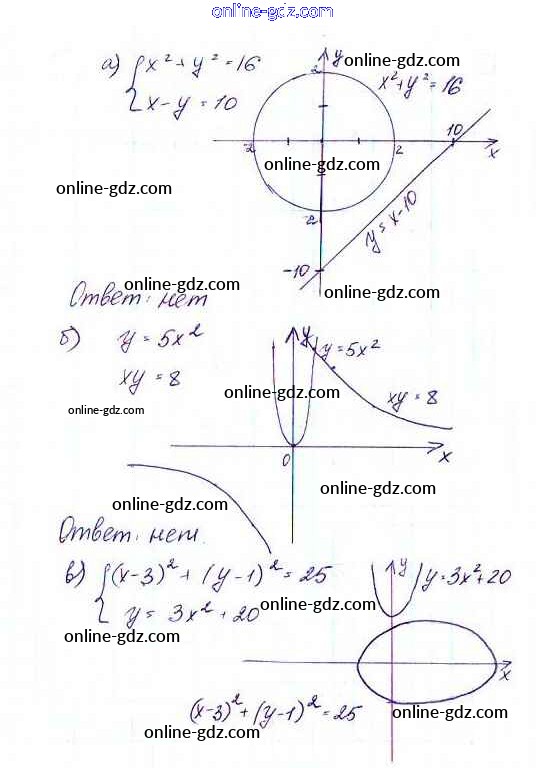 online-gdz.com
а) { x² + y² = 16
x - y = 10
online-gdz.com
y
2
x² + y² = 16
online-gdz.com
2
2
10
x
online-gdz.com
2
y = x - 10
-10
online-gdz.com
online-gdz.com
Ответ: нет
б) y = 5x²
xy = 8
online-gdz.com
y
y = 5x²
online-gdz.com
xy = 8
0
x
online-gdz.com
online-gdz.com
Ответ: нет.
в) { (x-3)² + (y-1)² = 25
y = 3x² + 20
online-gdz.com
online-gdz.com
y
y = 3x² + 20
x
(x-3)² + (y-1)² = 25
online-gdz.com
online-gdz.com